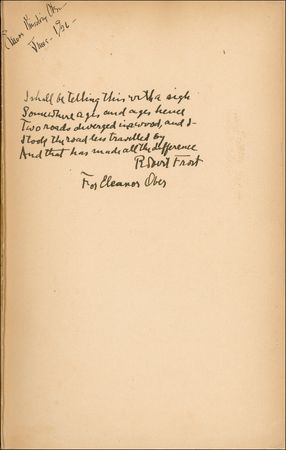 Eleanor Ober
June - 19
I shall be telling this with a sigh
Somewhere ages and ages hence
Two roads diverged in a wood, and I-
I took the road less travelled by
And that has made all the difference
Robert Frost
For Eleanor Ober